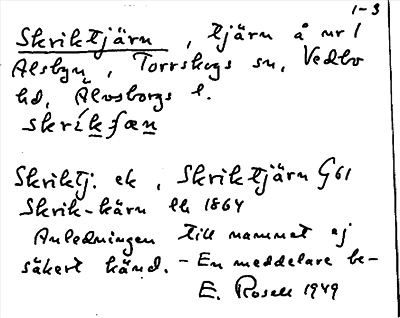 1-3
Skriktjärn, tjärn å nr 1
Alsbyn, Torrskogs sn, Vedbo
hd, Älvsborgs l.
skríkfæn
Skriktj. ek, Skriktjärn G61
Skrik-kärn lk 1864
Anledningen till namnet ej
säkert känd. - En meddelare be-
E. Rosell 1949